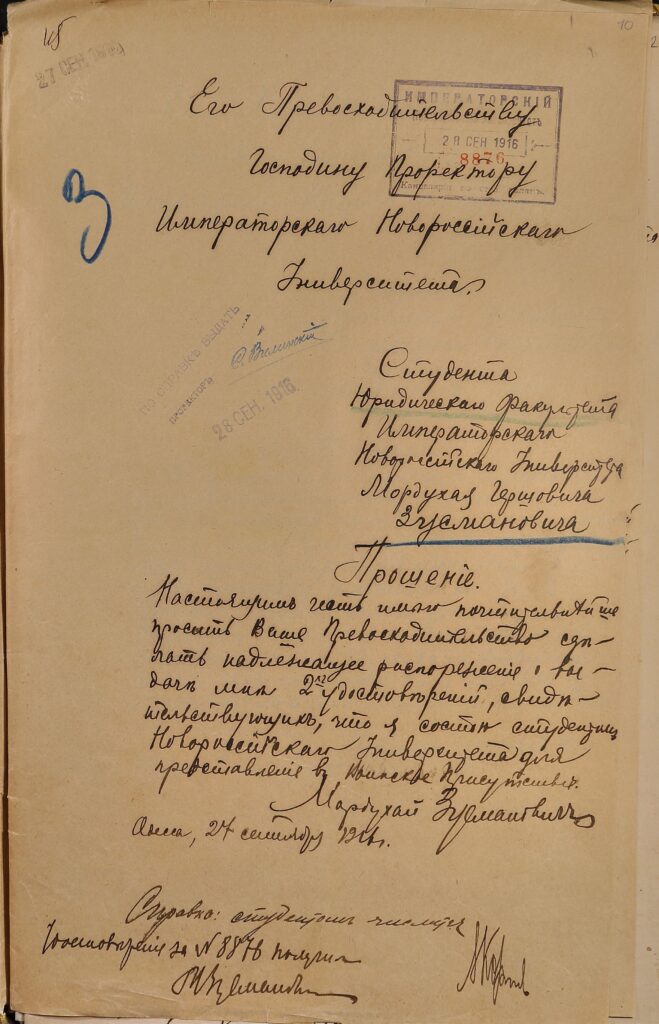 10
27 СЕН. 1916
ИМПЕРАТОРСКІЙ
28 СЕН 1916
8876
Его Превосходительству
Господину Проректору
Императорскаго Новороссійскаго
Университета.
З
ПО СПРАВКѢ ВЫДАТЬ
ПРОРЕКТОРЪ
28 СЕН. 1916
Студента
Юридическаго Факультета
Императорскаго
Новороссійскаго Университета
Мордухая Гершовича
Зусмановича
Прошеніе.
Настоящимъ честь имѣю почтительнѣйше
просить Ваше Превосходительство сдѣ-
лать надлежащее распоряженіе о вы-
дачѣ мнѣ 2хъ удостовѣреній, свидѣ-
тельствующихъ, что я состою студентомъ
Новороссійскаго Университета для
представленіе въ Воинское Присутствіе.
Мордухай Зусмановичъ
Одесса, 27 сентября 1916 г.
Справка: студентомъ числится
Удостовѣреніе за № 8876 получилъ
М Зусмановичъ